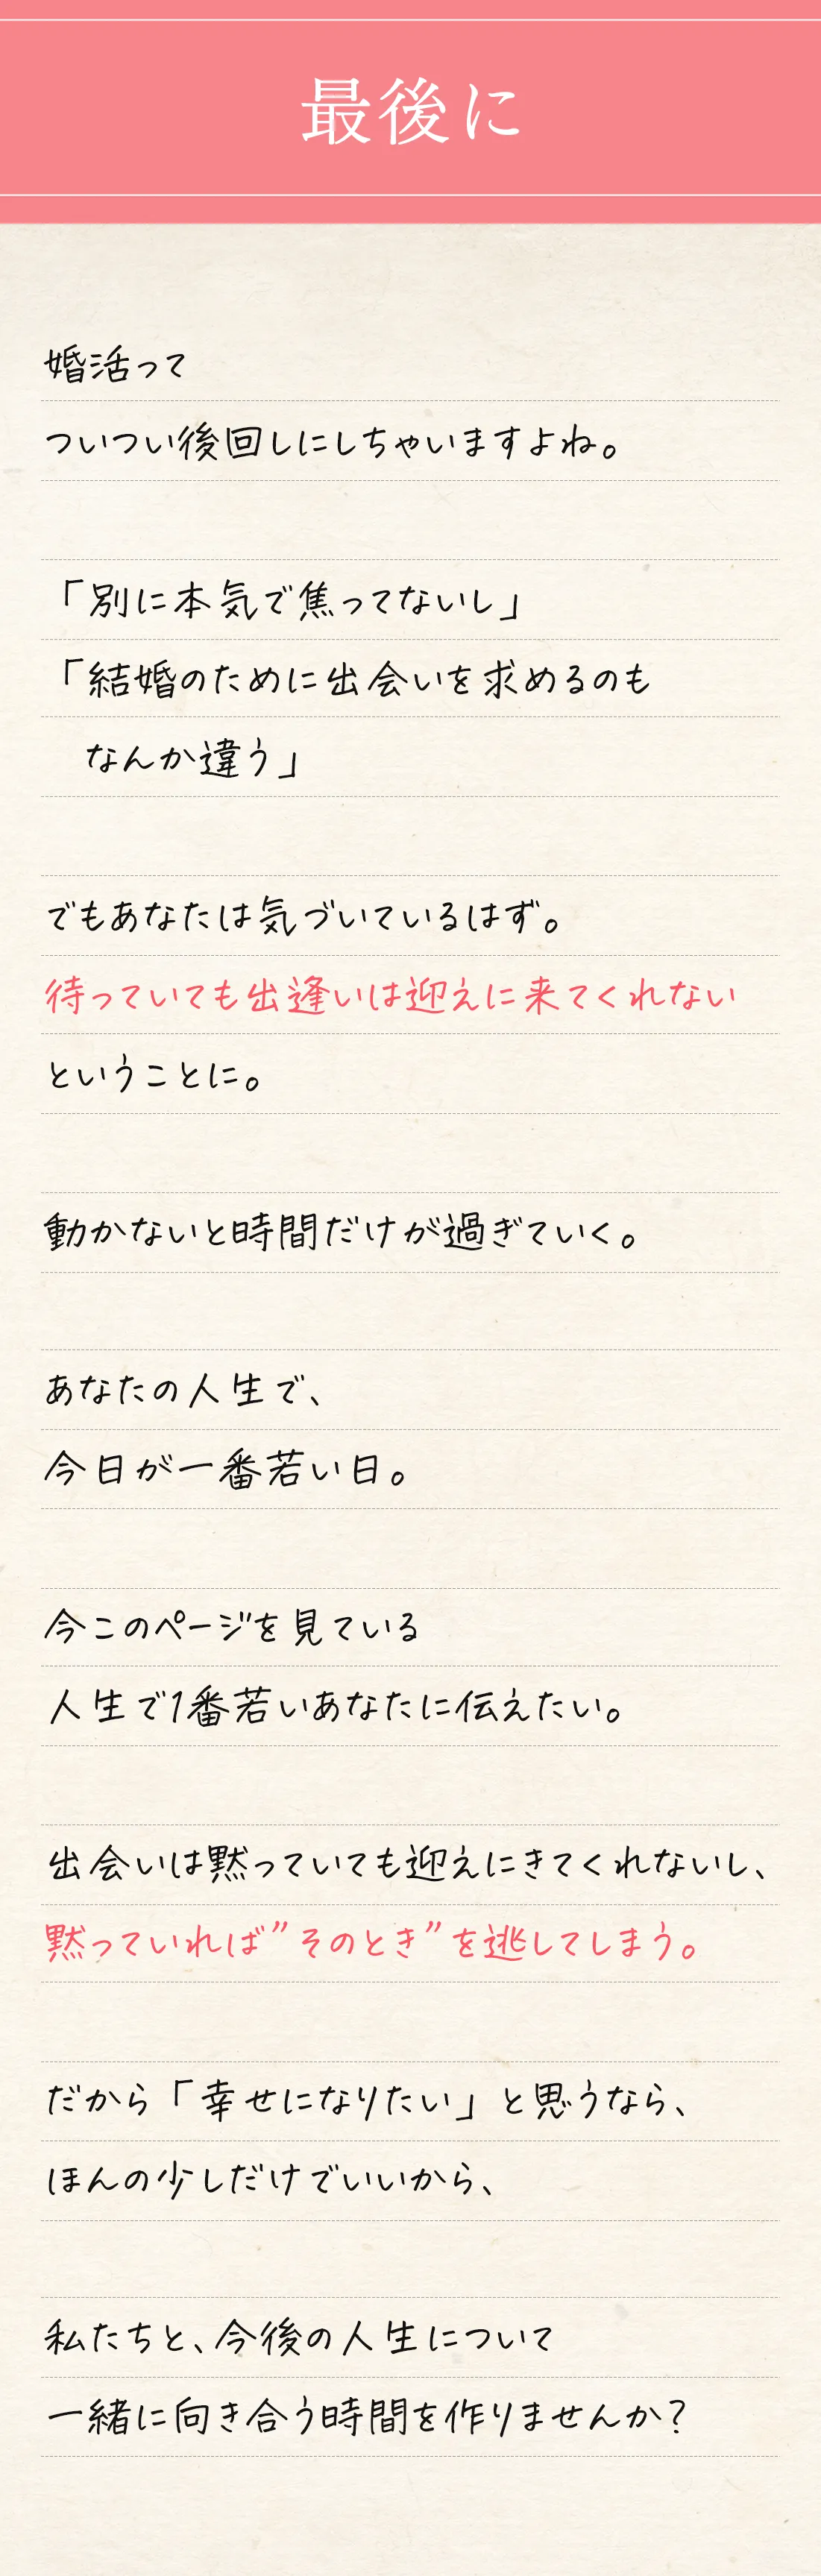 最後に
婚活って
ついつい後回しにしちゃいますよね。
「別に本気で焦ってないし」
「結婚のために出会いを求めるのも
なんか違う」
でもあなたは気づいているはず。
待っていても出逢いは迎えに来てくれない
ということに。
動かないと時間だけが過ぎていく。
あなたの人生で、
今日が一番若い日。
今このページを見ている
人生で1番若いあなたに伝えたい。
出会いは黙っていても迎えにきてくれないし、
黙っていれば”そのとき”を逃してしまう。
だから「幸せになりたい」と思うなら、
ほんの少しだけでいいから、
私たちと、今後の人生について
一緒に向き合う時間を作りませんか?